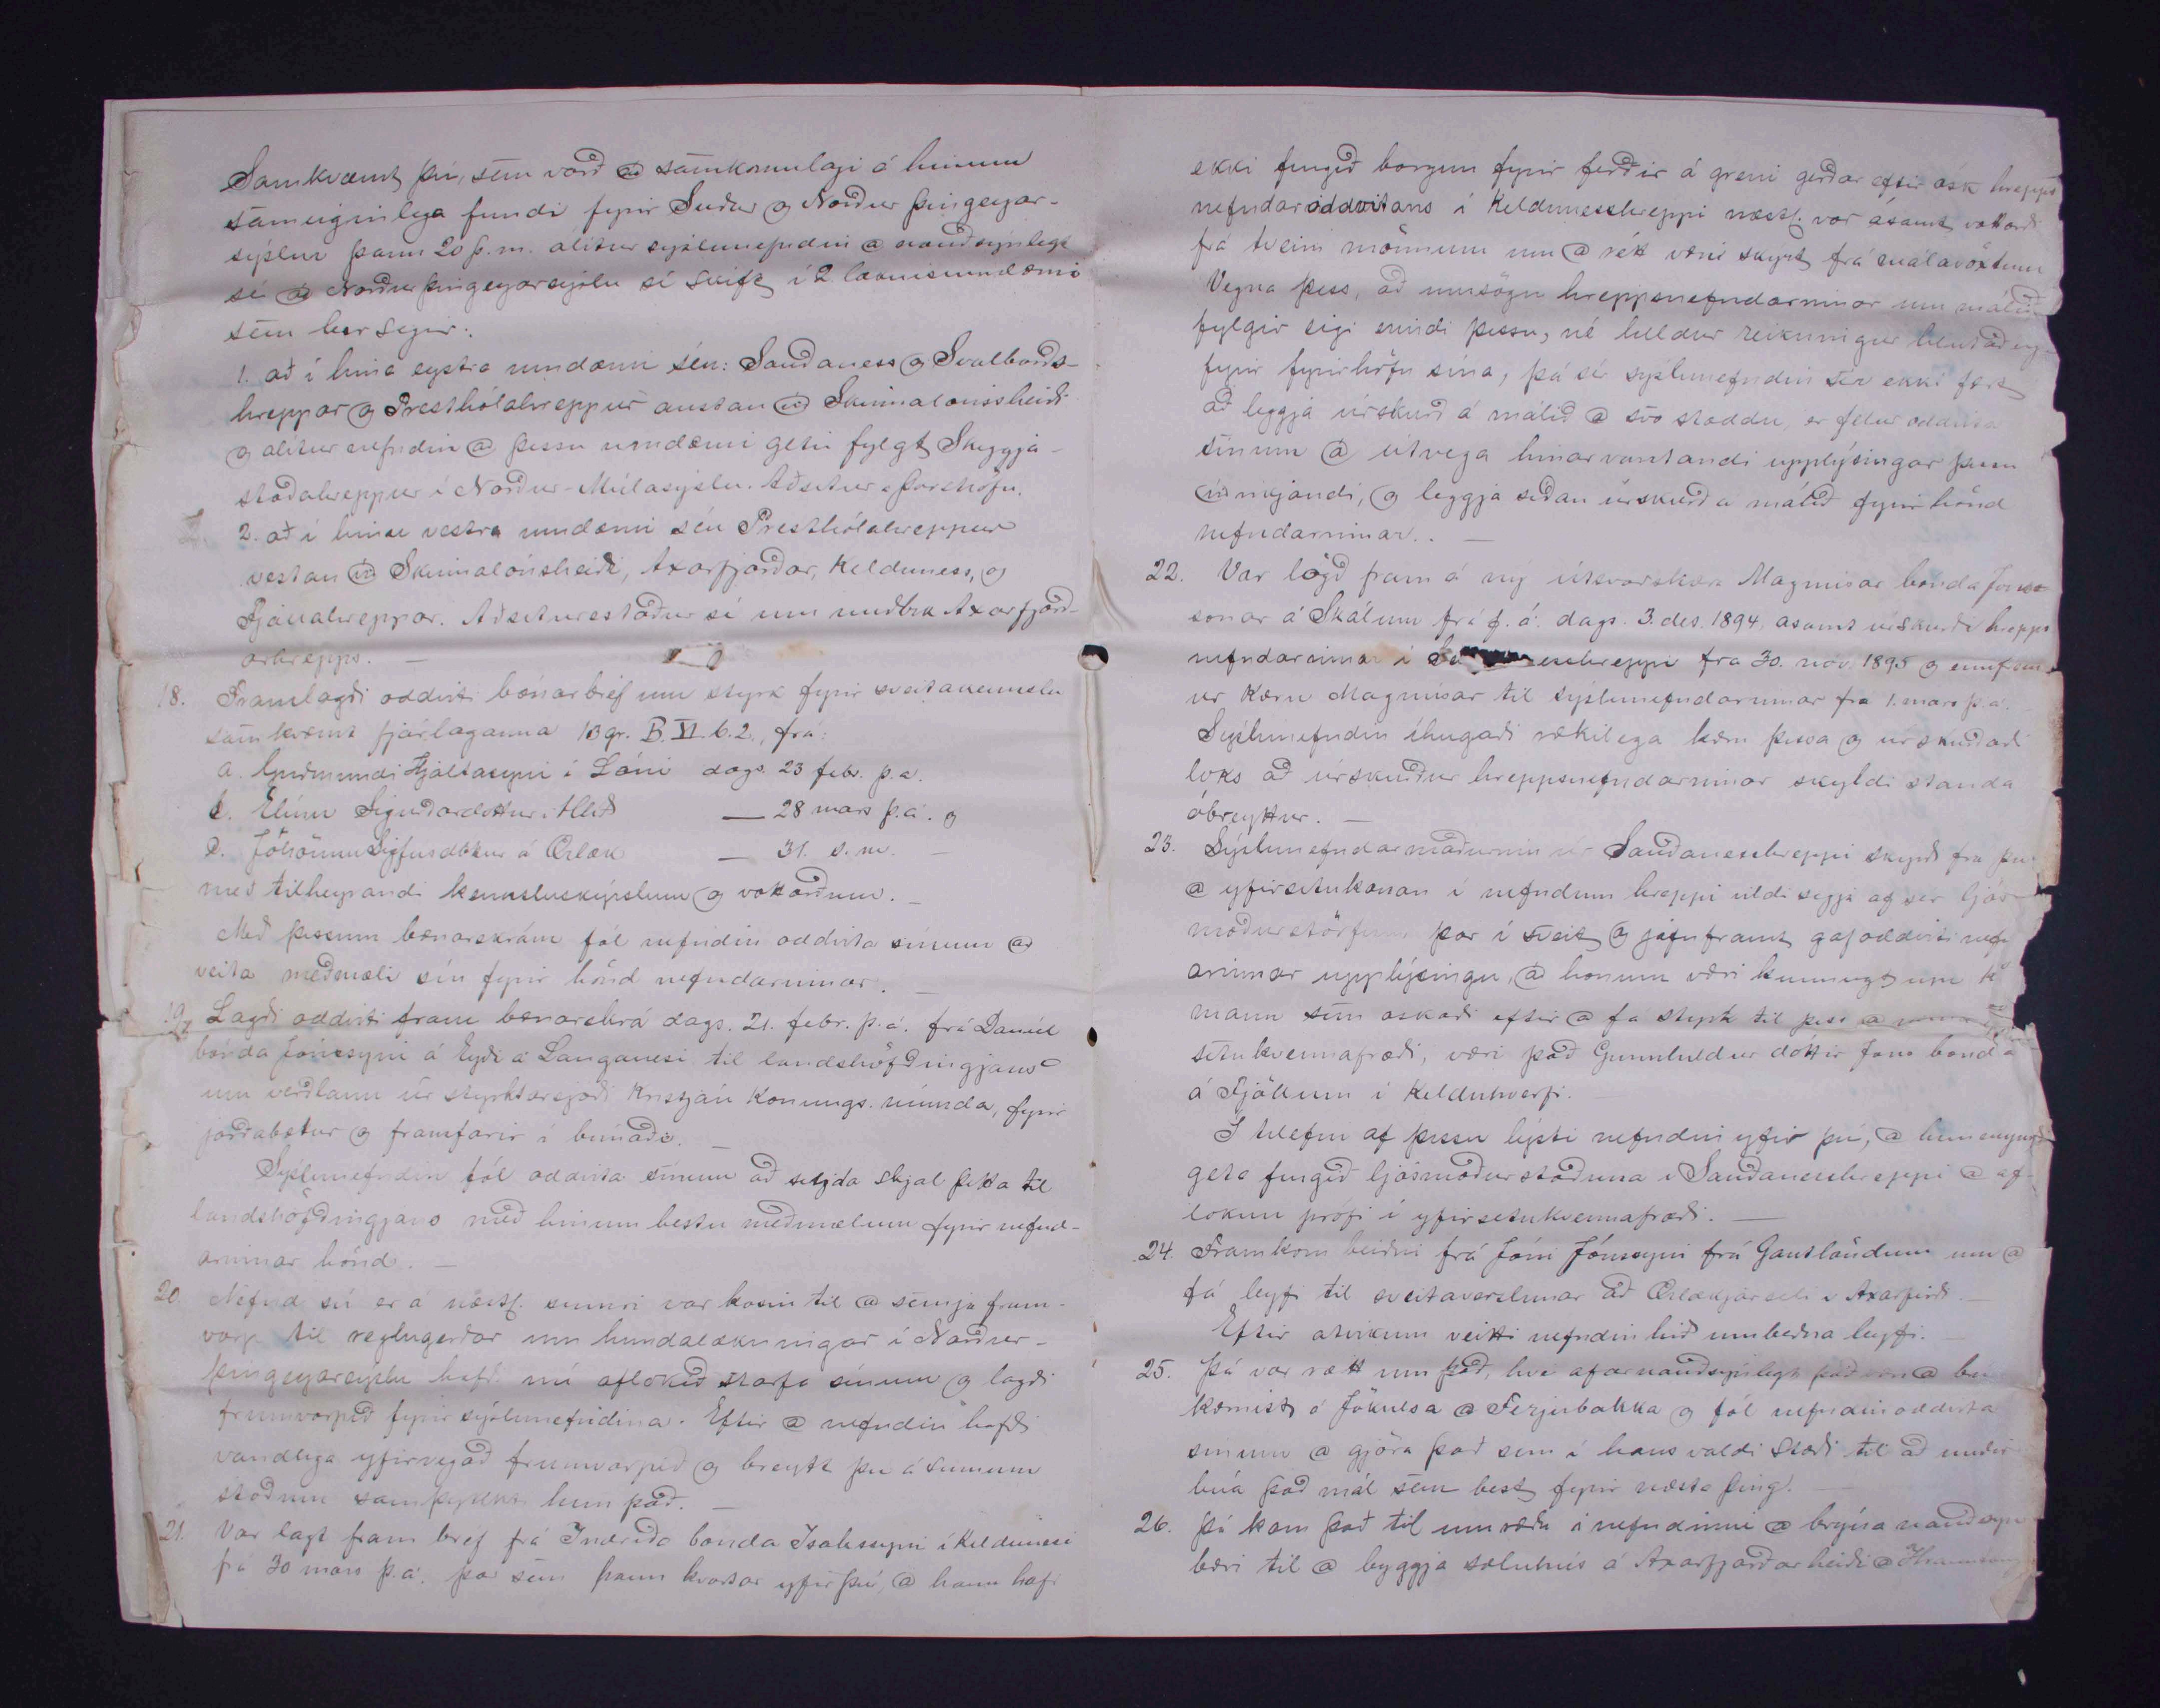 Samkvæmt því, sem varð @ samkomulagi á hinum
sameiginlega fundi fyrir Suður og Norður þingeyjar-
sýslur þann 20 þ.m. álítur sýslunefndin @ nauðsynlegt
sé @ Norður þingeyjarsýslu sé skift í 2 læknisumdæmi
sem hér segir:
1. að í hinu eystra umdæmi séu: Sauðaness og Svalbarðs-
hreppar og Presthólahreppur austan við Skinnalónsheiði
og álítur nefndin @ þessu umdæmi geti fylgt Skeggja-
staðahreppur í Norður-Múlasýslu. Aðsetur Þórshöfn.
2. að í hinu vestra umdæmi séu Presthólahreppur
vestan við Skinnalónsheiði, Axarfjarðar, Kelduness, og
Fjallahreppar. Aðsetursstaður sé um miðbik Axarfjarð-
arhrepps. —
18. Framlagði oddviti bónarbréf um styrk fyrir sveitakennslu
samkvæmt fjárlaganna 13 gr. B. VI. b. 2., frá:
a. Guðmundi Hjaltasyni í Lóni dags. 23 febr. þ.a.
b. Elínu Sigurðardóttur í Hlíð — 28 mars þ.á. og
c. Jóhönnu Sigfúsdóttur á Ærlæk — 31. s.m. —
með tilheyrandi kennsluskýrslum og vottorðum. —
Með þessum bænarskrám fól nefndin oddvita sínum @
veita meðmæli sín fyrir hönd nefndarinnar. —
19. Lagði oddviti fram bænarskrá dags. 21. febr. þ.á. frá Daníel
bónda Jónssyni á Eyði á Langanesi til landshöfðingjans
um verðlaun úr styrktarsjóði Kristján konungs níunda, fyrir
jarðabætur og framfarir í búnaði. —
Sýslunefndin fól oddvita sínum að senda skjal þetta til
landshöfðingjans með hinum bestu meðmælum fyrir nefnd-
arinnar hönd. —
20. Nefnd sú er á næstl. sumri var kosin til @ semja frum-
varp til reglugerðar um hundalækningar í Norður-
þingeyarsýslu hafði nú aflokið starfa sínum og lagði
frumvarpið fyrir sýslunefndina. Eftir @ nefndin hafði
vandlega yfirvegað frumvarpið og breytt því á sumum
stöðum samþykkti hún það. —
21. Var lagt fram bréf frá Indriða bónda Isakssyni í Keldunesi
frá 30 mars þ.á. þar sem hann kvartar yfir því, @ hann hafi
ekki fengið borgun fyrir ferðir á greni gerðar eftir ósk hrepps
nefndaroddvitans í Kelduneshreppi næstl. vor ásamt vottorði
frá tveim mönnum um @ rétt væri skýrt frá málavöxtum
Vegna þess, að umsögn hreppsnefndarinnar um málið
fylgir eigi erindi þessu, né heldur reikningur
fyrir fyrirhöfn sína, þá sér sýslunefndin sér ekki fært
að leggja úrskurð á málið @ svo stöddu, er felur oddvita
sínum @ útvega hinar vantandi upplýsingar þessu
viðvíkjandi, og leggja síðan úrskurð á málið fyrir hönd
nefndarinnar. —
22. Var lögð fram á ný útsvarskæra Magnúsar bónda Jóns-
sonar á Skálum frá f.á. dags. 3. des. 1894, ásamt úrskurði hrepps
nefndarinnar í neshreppi frá 30. nóv. 1895 og ennfrem-
ur kæru Magnúsar til sýslunefndarinnar frá 1. mars þ.á.
Sýslunefndin íhugaði rækilega kæru þessa og úrskurðaði
loks að úrskurður hreppsnefndarinnar skyldi standa
óbreyttur. —
23. Sýslunefndarmaðurinn úr Sauðaneshreppi skýrði frá því
@ yfirsetukonan í nefndum hreppi vildi segja af sér ljós-
móðurstörfum þar í sveit og jafnframt gaf oddviti nefnd
arinnar upplýsingu, @ honum væri kunnugt um
mann sem óskaði eftir @ fá styrk til þess @
setukvennafræði, væri það Gunnhildur dóttir Jóns bónda
á Fjöllum í Kelduhverfi.
Í tilefni af þessu lýsti nefndin yfir því, @ hún
geta fengið ljósmóðurstöðuna í Sauðaneshreppi @ af-
loknu prófi í yfirsetukvennafræði. —
24. Framkom beiðni frá Jóni Jónssyni frá Gautlöndum um @
fá leyfi til sveitaverslunar að Ærlækjarseli í Axarfirði. —
Eftir atvikum veitti nefndin hið umbeðna leyfi. —
25. Þá var rætt um það, hve afarnauðsynlegt það væri @ brú
kæmist á Jökulsá @ Ferjubakka og fól nefndin oddvita
sínum @ gjöra það sem í hans valdi stæði til að undir
búa það mál sem best fyrir næsta þing. —
26. Þá kom það til umræðu í nefndinni @ brýna nauðsyn
bæri til @ byggja sæluhús á Axarfjarðarheiði @